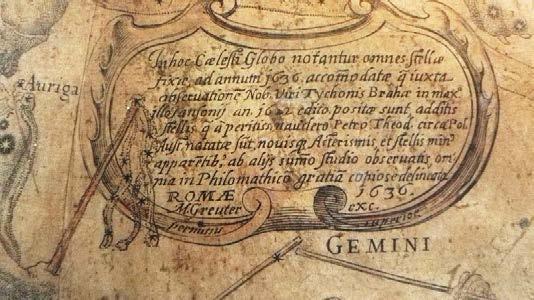 Auriga
In hoc Cælesti Globo notantur omnes stellæ
fixæ, ad annum 1636. accomodatæ q̃ iuxta
observationē Nob. Viri Tychonis Brahæ in max
illo Jansonij an. 1622 edito, positæ sunt additis
stellis q̃ à peritis. nauclero Petro Theod. circa Pol.
Aust. notatæ sūt, nouisq̃ Asterismis, et stellis min⁹
apparētib⁹. ab alijs sūmo studio observatis, om
nia in Philomathicō gratiā copiose delineata.
ROMÆ 1636.
M. Greuter exc.
permissu superior.
GEMINI